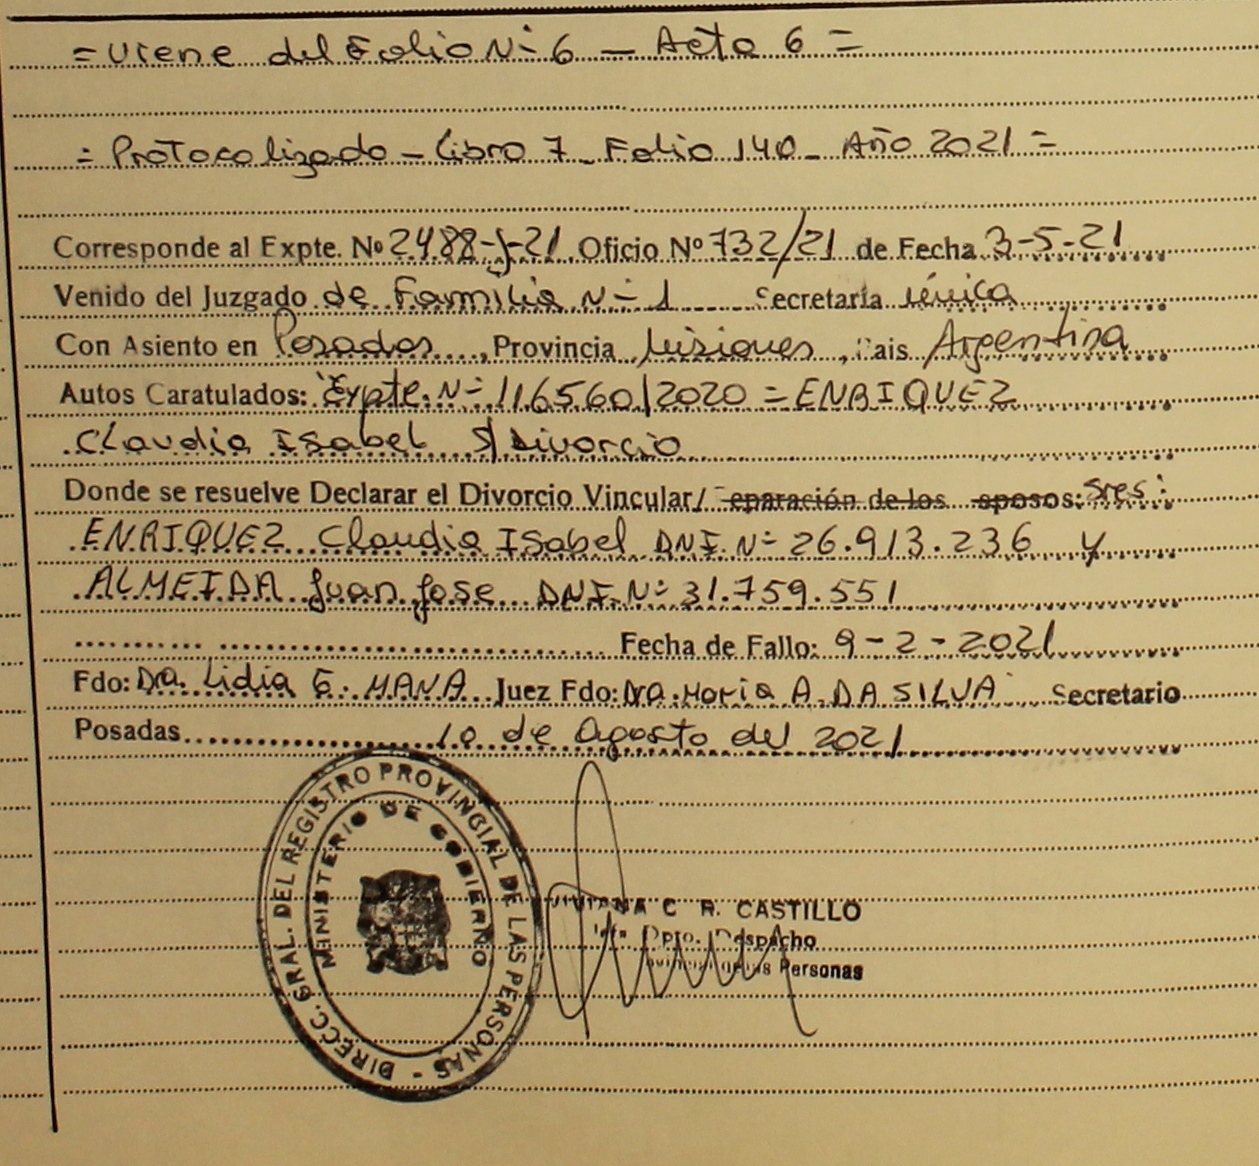 = Viene del Folio Nº 6 — Acta 6 =
= Protocolizado - Libro 7 - Folio 140 - Año 2021 =
Corresponde al Expte. Nº 2488-J-21 Oficio Nº 732/21 de Fecha 3-5-21
Venido del Juzgado de Familia Nº 1 Secretaria única
Con Asiento en Posadas, Provincia Misiones, Pais Argentina
Autos Caratulados: Expte. Nº 116560/2020 = ENRIQUEZ
Claudia Isabel S/Divorcio
Donde se resuelve Declarar el Divorcio Vincular/ eparación de los sposos: Sres:
ENRIQUEZ Claudia Isabel DNI Nº 26.913.236 y
ALMEIDA Juan Jose DNI Nº 31.759.551
Fecha de Fallo: 9-2-2021
Fdo: Dra. Lidia E. MANA Juez Fdo: Dra. Maria A. DA SILVA Secretario
Posadas 10 de Agosto del 2021
DIRECC. GRAL. DEL REGISTRO PROVINCIAL DE LAS PERSONAS -
MINISTERIO DE GOBIERNO
VIVIANA C R. CASTILLO
Dpto. Despacho
Personas